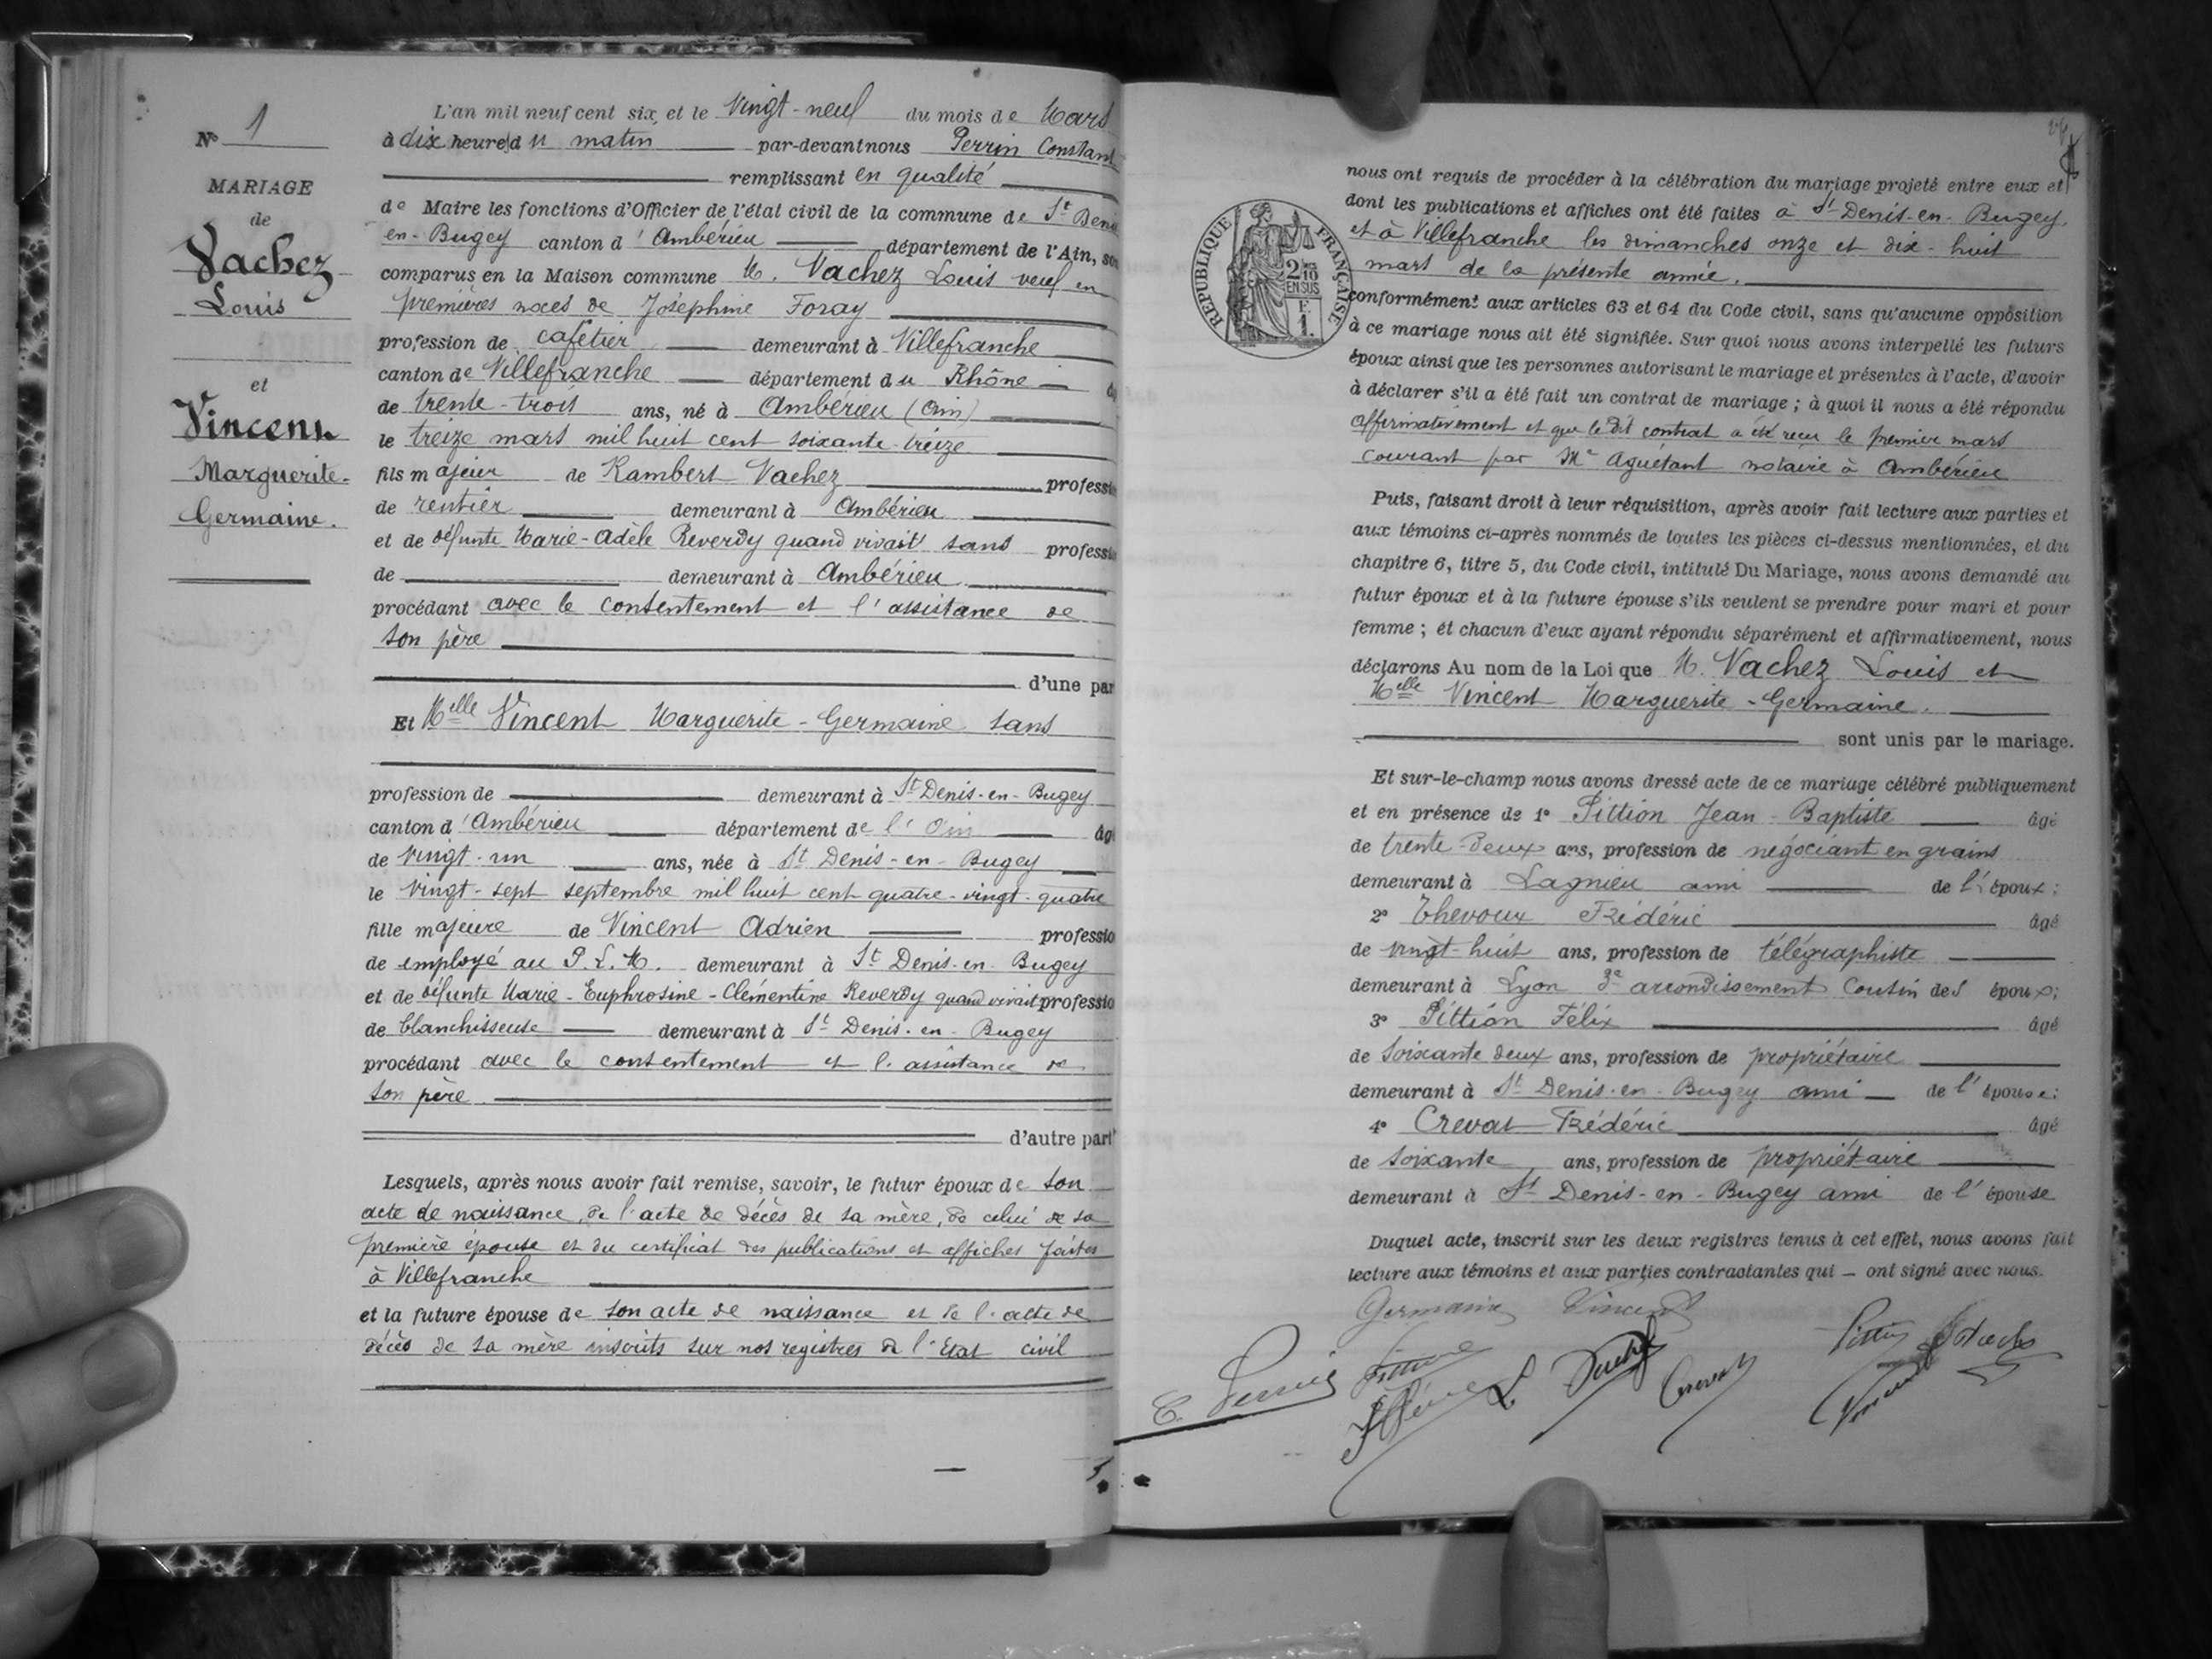 N° 1
MARIAGE
de
Vachez
Louis
et
Vincent
Marguerite-
Germaine.
L'an mil neuf cent six, et le Vingt-neuf du mois de Mars
à dix heures du matin par-devant nous Perrin Constant
remplissant en qualité
de Maire les fonctions d'Officier de l'état civil de la commune de St Denis
en-Bugey canton d'Ambérieu département de l'Ain, sont
comparus en la Maison commune M. Vachez Louis veuf en
premières noces de Joséphine Foray
profession de cafetier demeurant à Villefranche
canton de Villefranche département du Rhône âgé
de trente-trois ans, né à Ambérieu (Ain)
le treize mars mil huit cent soixante-treize
fils majeur de Rambert Vachez profession
de rentier demeurant à Ambérieu
et de défunte Marie-Adèle Reverdy quand vivait sans profession
de demeurant à Ambérieu
procédant avec le consentement et l'assistance de
son père
d'une part
Et Melle Vincent Marguerite-Germaine sans
profession de demeurant à St Denis-en-Bugey
canton d'Ambérieu département de l'Ain âgé
de vingt-un ans, née à St Denis-en-Bugey
le vingt-sept septembre mil huit cent quatre-vingt-quatre
fille majeure de Vincent Adrien profession
de employé au P.L.M. demeurant à St Denis-en-Bugey
et de défunte Marie-Euphrosine-Clémentine Reverdy quand vivait profession
de blanchisseuse demeurant à St Denis-en-Bugey
procédant avec le consentement et l'assistance de
son père.
d'autre part
Lesquels, après nous avoir fait remise, savoir, le futur époux de son
acte de naissance, de l'acte de décès de sa mère, de celui de sa
première épouse et du certificat des publications et affiches faites
à Villefranche
et la future épouse de son acte de naissance et de l'acte de
décès de sa mère inscrits sur nos registres de l'Etat civil
RÉPUBLIQUE FRANÇAISE
2/10
EN SUS
F.
1.
nous ont requis de procéder à la célébration du mariage projeté entre eux et
dont les publications et affiches ont été faites à St-Denis-en-Bugey,
et à Villefranche les dimanches onze et dix-huit
mars de la présente année.
conformément aux articles 63 et 64 du Code civil, sans qu'aucune opposition
à ce mariage nous ait été signifiée. Sur quoi nous avons interpellé les futurs
époux ainsi que les personnes autorisant le mariage et présentes à l'acte, d'avoir
à déclarer s'il a été fait un contrat de mariage ; à quoi il nous a été répondu
affirmativement et que le dit contrat a été reçu le premier mars
courant par Me Aguétant notaire à Ambérieu
Puis, faisant droit à leur réquisition, après avoir fait lecture aux parties et
aux témoins ci-après nommés de toutes les pièces ci-dessus mentionnées, et du
chapitre 6, titre 5, du Code civil, intitulé Du Mariage, nous avons demandé au
futur époux et à la future épouse s'ils veulent se prendre pour mari et pour
femme ; et chacun d'eux ayant répondu séparément et affirmativement, nous
déclarons Au nom de la Loi que M. Vachez Louis et
Melle Vincent Marguerite-Germaine.
sont unis par le mariage.
Et sur-le-champ nous avons dressé acte de ce mariage célébré publiquement
et en présence de 1° Pittion Jean-Baptiste âgé
de trente-deux ans, profession de négociant en grains
demeurant à Lagnieu ami de l'époux ;
2° Thevoux Frédéric âgé
de vingt-huit ans, profession de télégraphiste
demeurant à Lyon 3e arrondissement cousin des époux ;
3° Pittion Félix âgé
de soixante deux ans, profession de propriétaire
demeurant à St Denis-en-Bugey ami de l'épouse ;
4° Crevat Frédéric âgé
de soixante ans, profession de propriétaire
demeurant à St Denis-en-Bugey ami de l'épouse
Duquel acte, inscrit sur les deux registres tenus à cet effet, nous avons fait
lecture aux témoins et aux parties contractantes qui — ont signé avec nous.
Germaine Vincent
C. Perrin
Crevat
Vincent